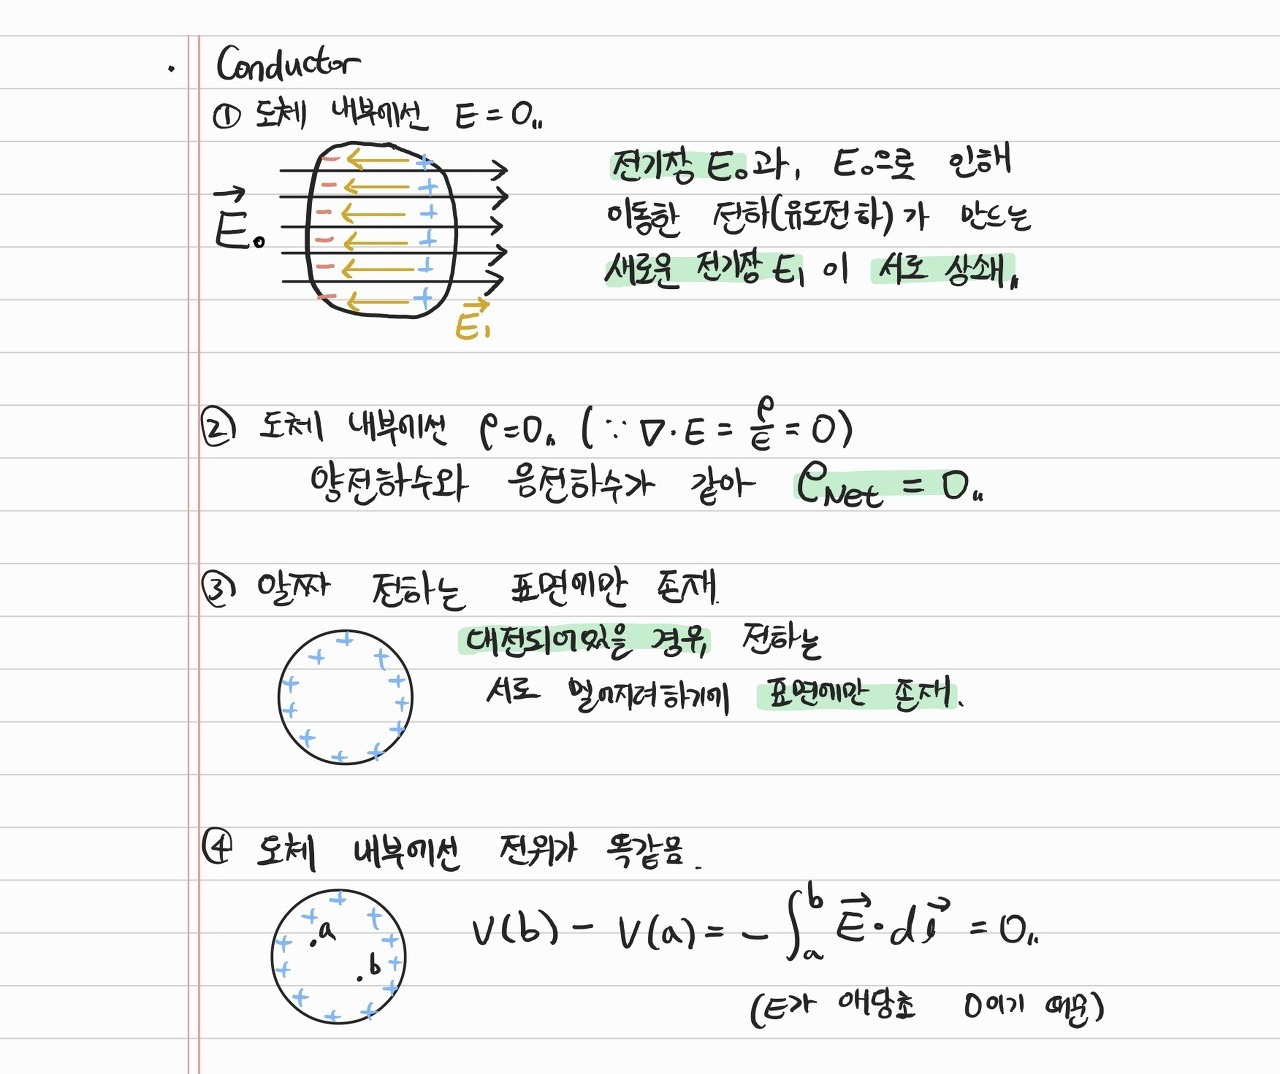 · Conductor
① 도체 내부에선 E = 0〃
전기장 E₀과, E₀으로 인해
이동한 전하(유도전하)가 만드는
새로운 전기장 E₁ 이 서로 상쇄〃
E₀
E₁
② 도체 내부에선 ρ=0〃 (∵ ∇·E = ρ/ε = 0)
양전하수와 음전하수가 같아 ρNet = 0〃
③ 알짜 전하는 표면에만 존재.
대전되어있을 경우, 전하는
서로 멀어지려하기에 표면에만 존재.
④ 도체 내부에선 전위가 똑같음.
a
b
V(b) - V(a) = -∫ₐᵇ E⃗·dl⃗ = 0〃
(E가 애당초 0이기 때문)